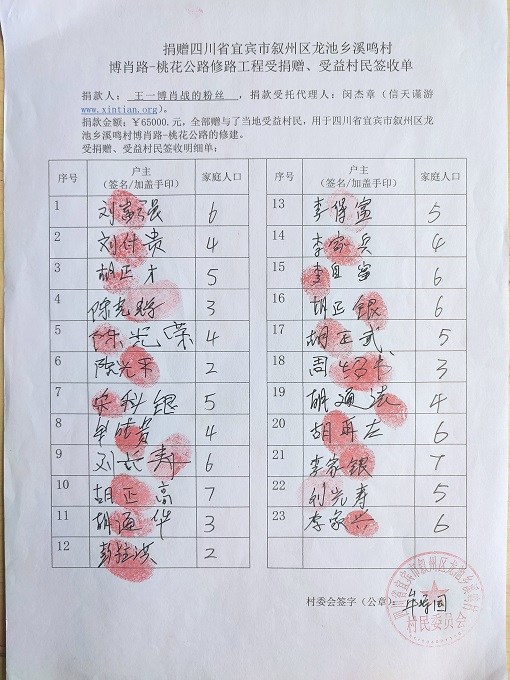 捐赠四川省宜宾市叙州区龙池乡溪鸣村
博肖路-桃花公路修路工程受捐赠、受益村民签收单
捐款人: 王一博肖战的粉丝 ,捐款受托代理人:闵杰章(信天谨游
www.xintian.org)。
捐款金额:¥65000.元,全部赠与了当地受益村民,用于四川省宜宾市叙州区龙
池乡溪鸣村博肖路-桃花公路的修建。
受捐赠、受益村民签收明细单;
序号 户主 (签名/加盖手印) 家庭人口 序号 户主 (签名/加盖手印) 家庭人口
1 刘富强 6
2 刘付贵 4
3 胡正才 5
4 陈光 3
5 陈光荣 4
6 陈光平 2
7 宋科银 5
8 牟成贵 4
9 刘长寿 6
10 胡正高 7
11 胡通华 3
12 彭 2
13 李保富 5
14 李家兵 4
15 李富 6
16 胡正银 6
17 胡正武 5
18 周书 3
19 胡通 4
20 胡再左 6
21 李家银 7
22 刘光寿 5
23 李家兴 6
村委会签字(公章):
宜宾市叙州区龙池乡溪鸣村
村民委员会